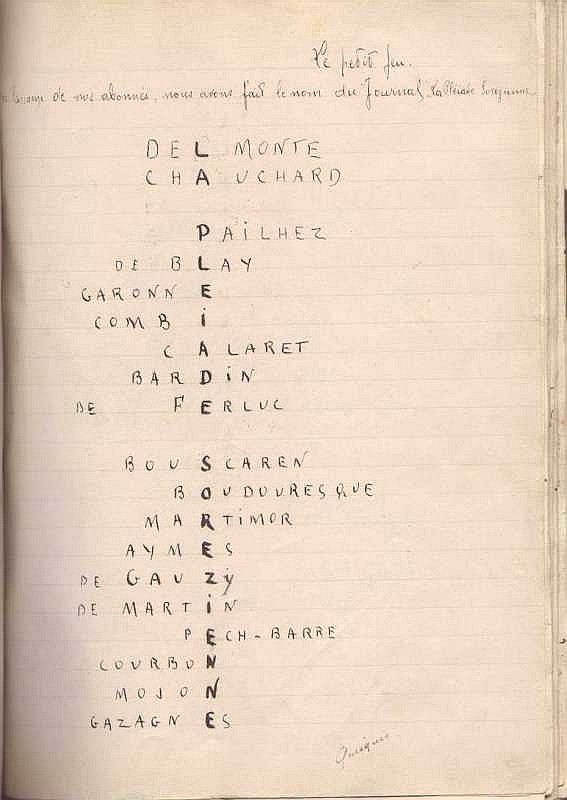 Le petit jeu.
de nos abonnés, nous avons fait le nom du Journal, La Pléiade Sorézienne
DEL MONTE
CHAUCHARD
PAILHEZ
DE BLAY
GARONNE
COMBi
CALARET
BARDiN
DE FERLUC
BOUSCAREN
BOUDOURESQUE
MARTiMOR
AYMES
DE GAUZy
DE MARTiN
PECH-BARRE
COURBON
MOJON
GAZAGNES